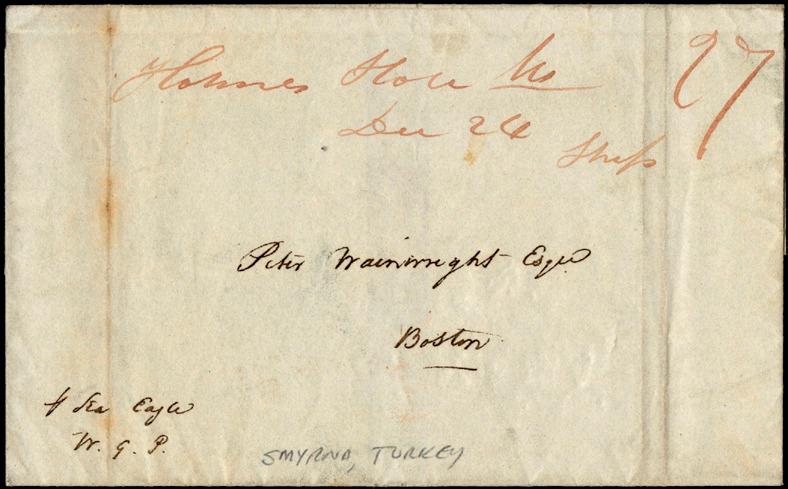 Holmes Hole Ms
27
Dec 24
Ship
Peter Wainwright Esqre
Boston
Sea Eagle
W. G. P.
SMYRNA, TURKEY